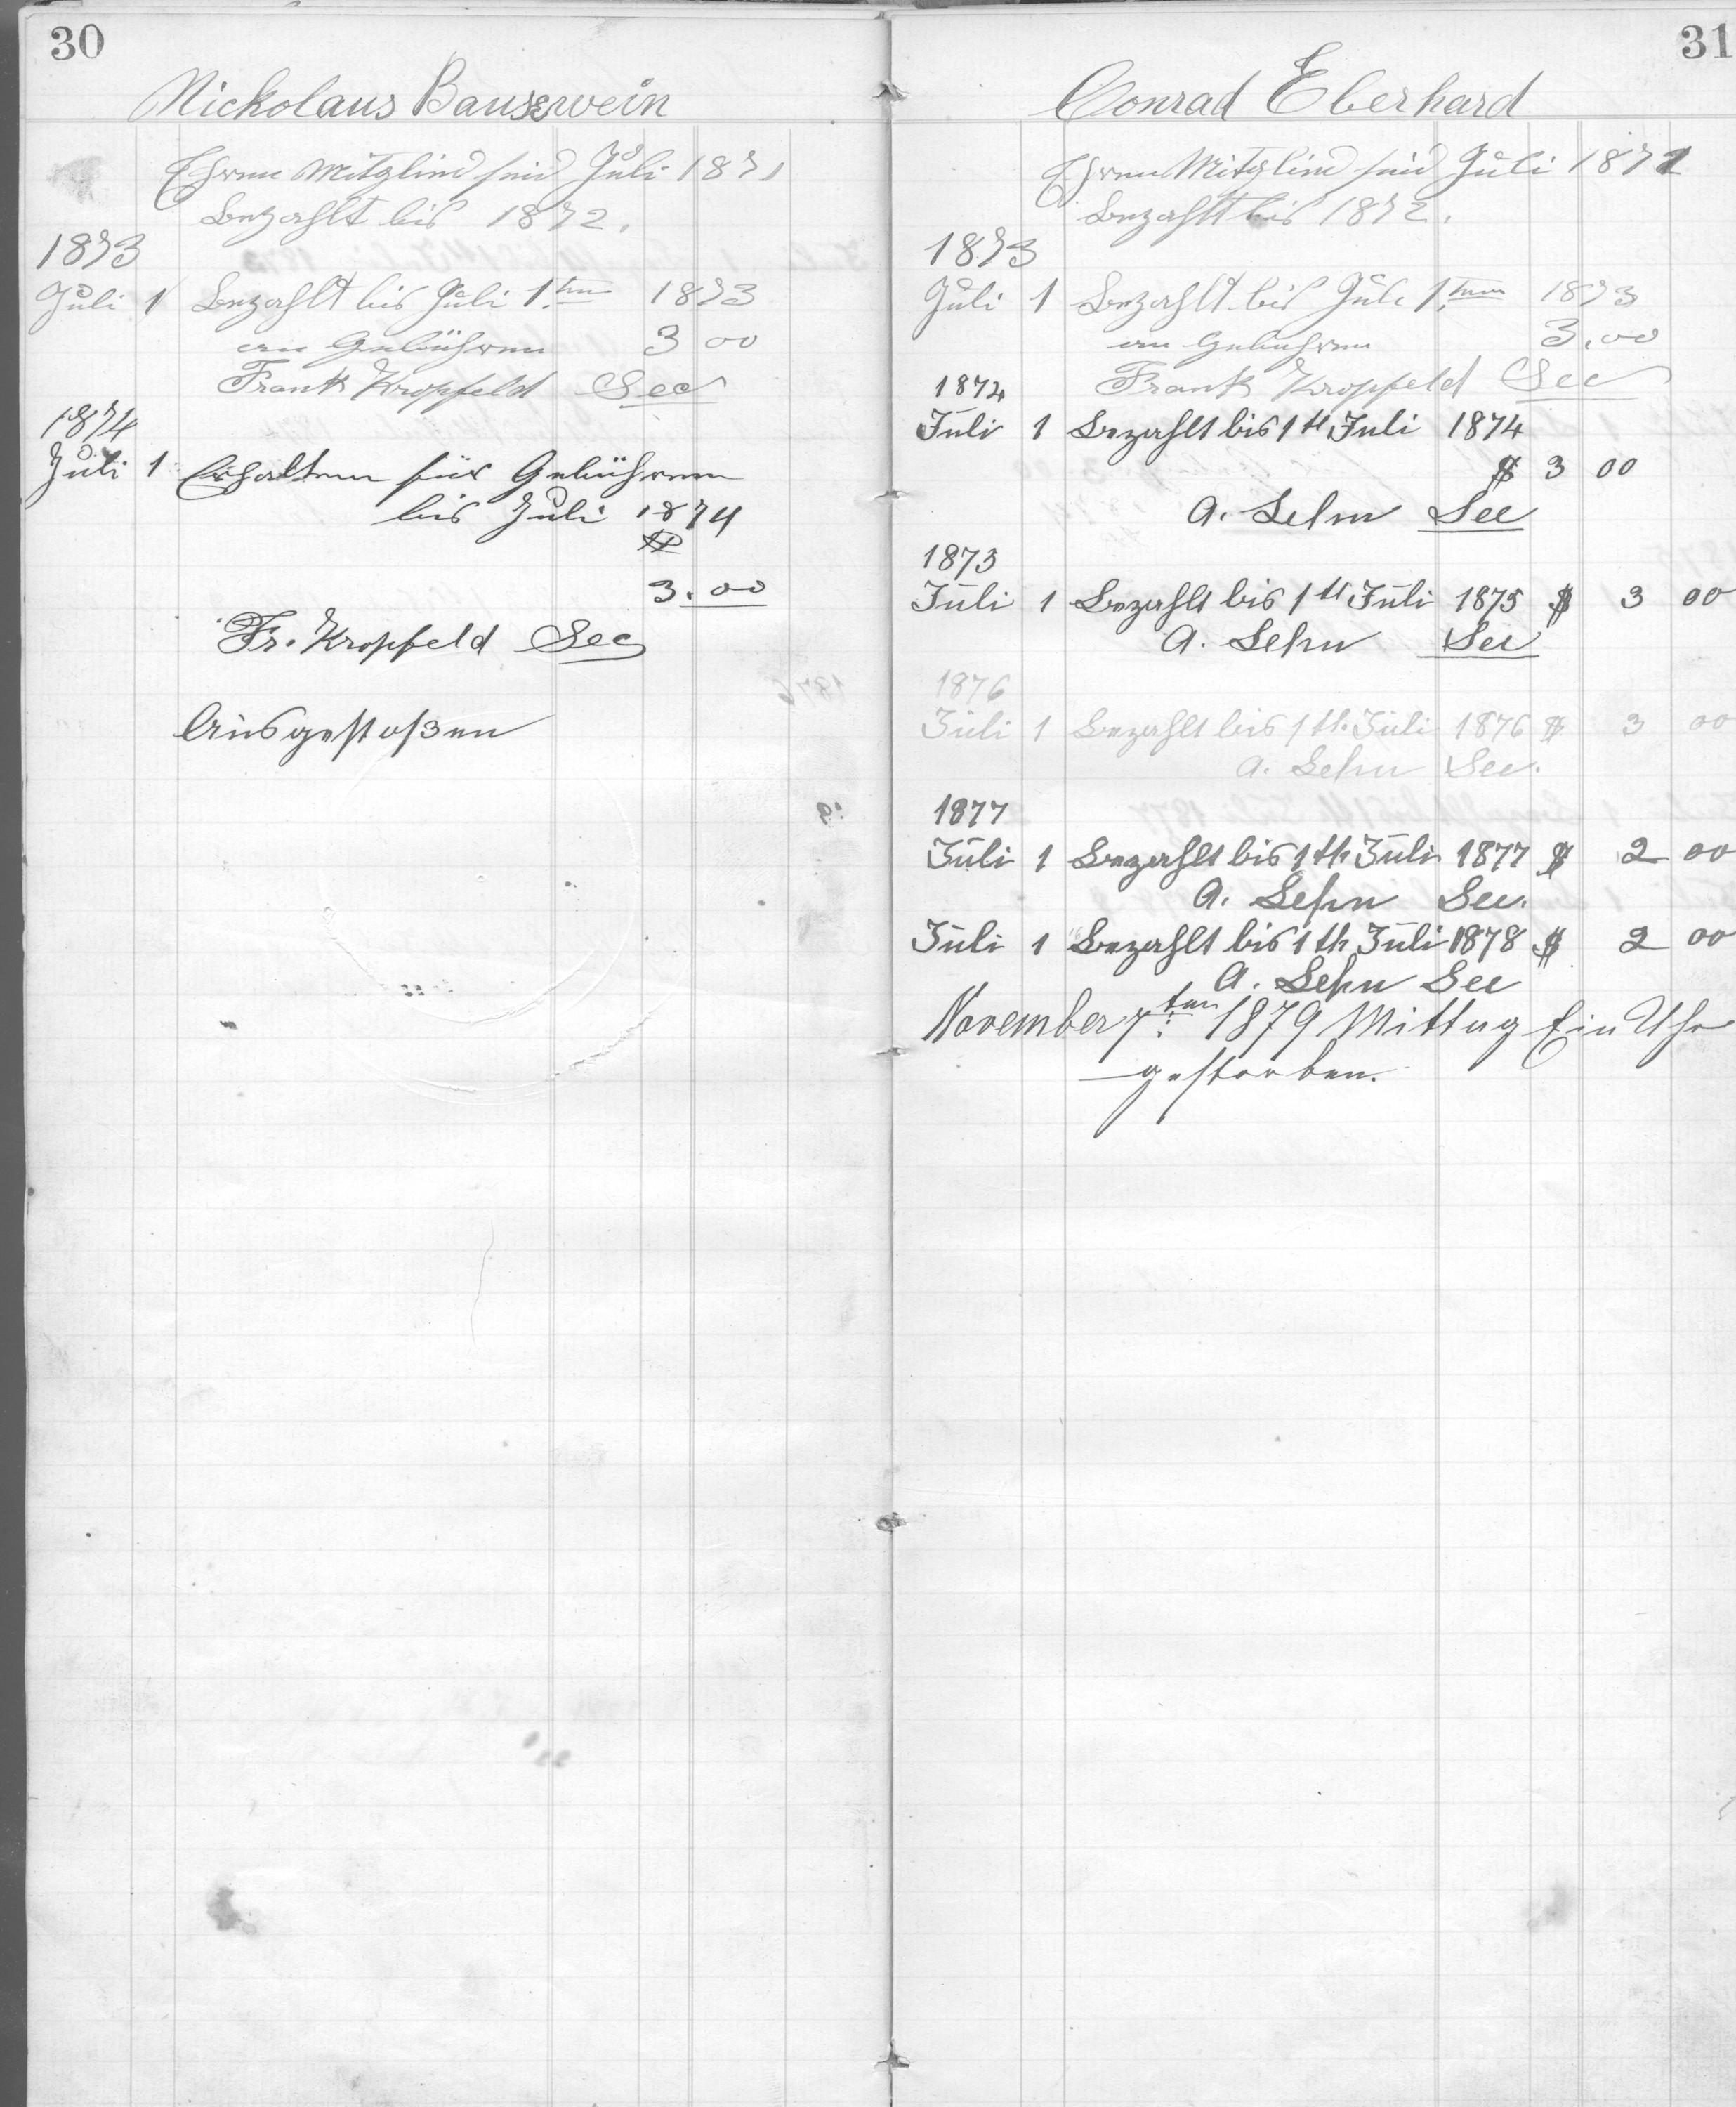 30
Nickolaus Bauserwein
Ehren Mitglied seid Juli 1871
bezahlt bis 1872.
1873
Juli 1 bezahlt bis Juli 1.ten 1873
an Gebühren 3 00
Frank Kropfeld Sec
1874
Juli 1 Erhalten für Gebühren
bis Juli 1874
$
3.00
Fr. Kropfeld Sec
Ausgestoßen
31
Conrad Eberhard
Ehren Mitglied seid Juli 1871
bezahlt bis 1872.
1873
Juli 1 bezahlt bis Juli 1.ten 1873
an Gebühren 3.00
Frank Kropfeld Sec
1874
Juli 1 bezahlt bis 1 tt Juli 1874
$ 3 00
A. Lehn Sec
1875
Juli 1 bezahlt bis 1 tt Juli 1875 $ 3 00
A. Lehn Sec
1876
Juli 1 bezahlt bis 1 th. Juli 1876 $ 3 00
A. Lehn Sec.
1877
Juli 1 bezahlt bis 1 th Juli 1877 $ 2 00
A. Lehn Sec.
Juli 1 bezahlt bis 1 th Juli 1878 $ 2 00
A. Lehn Sec
November 7.ten 1879 Mittag Ein Uhr
gestorben.